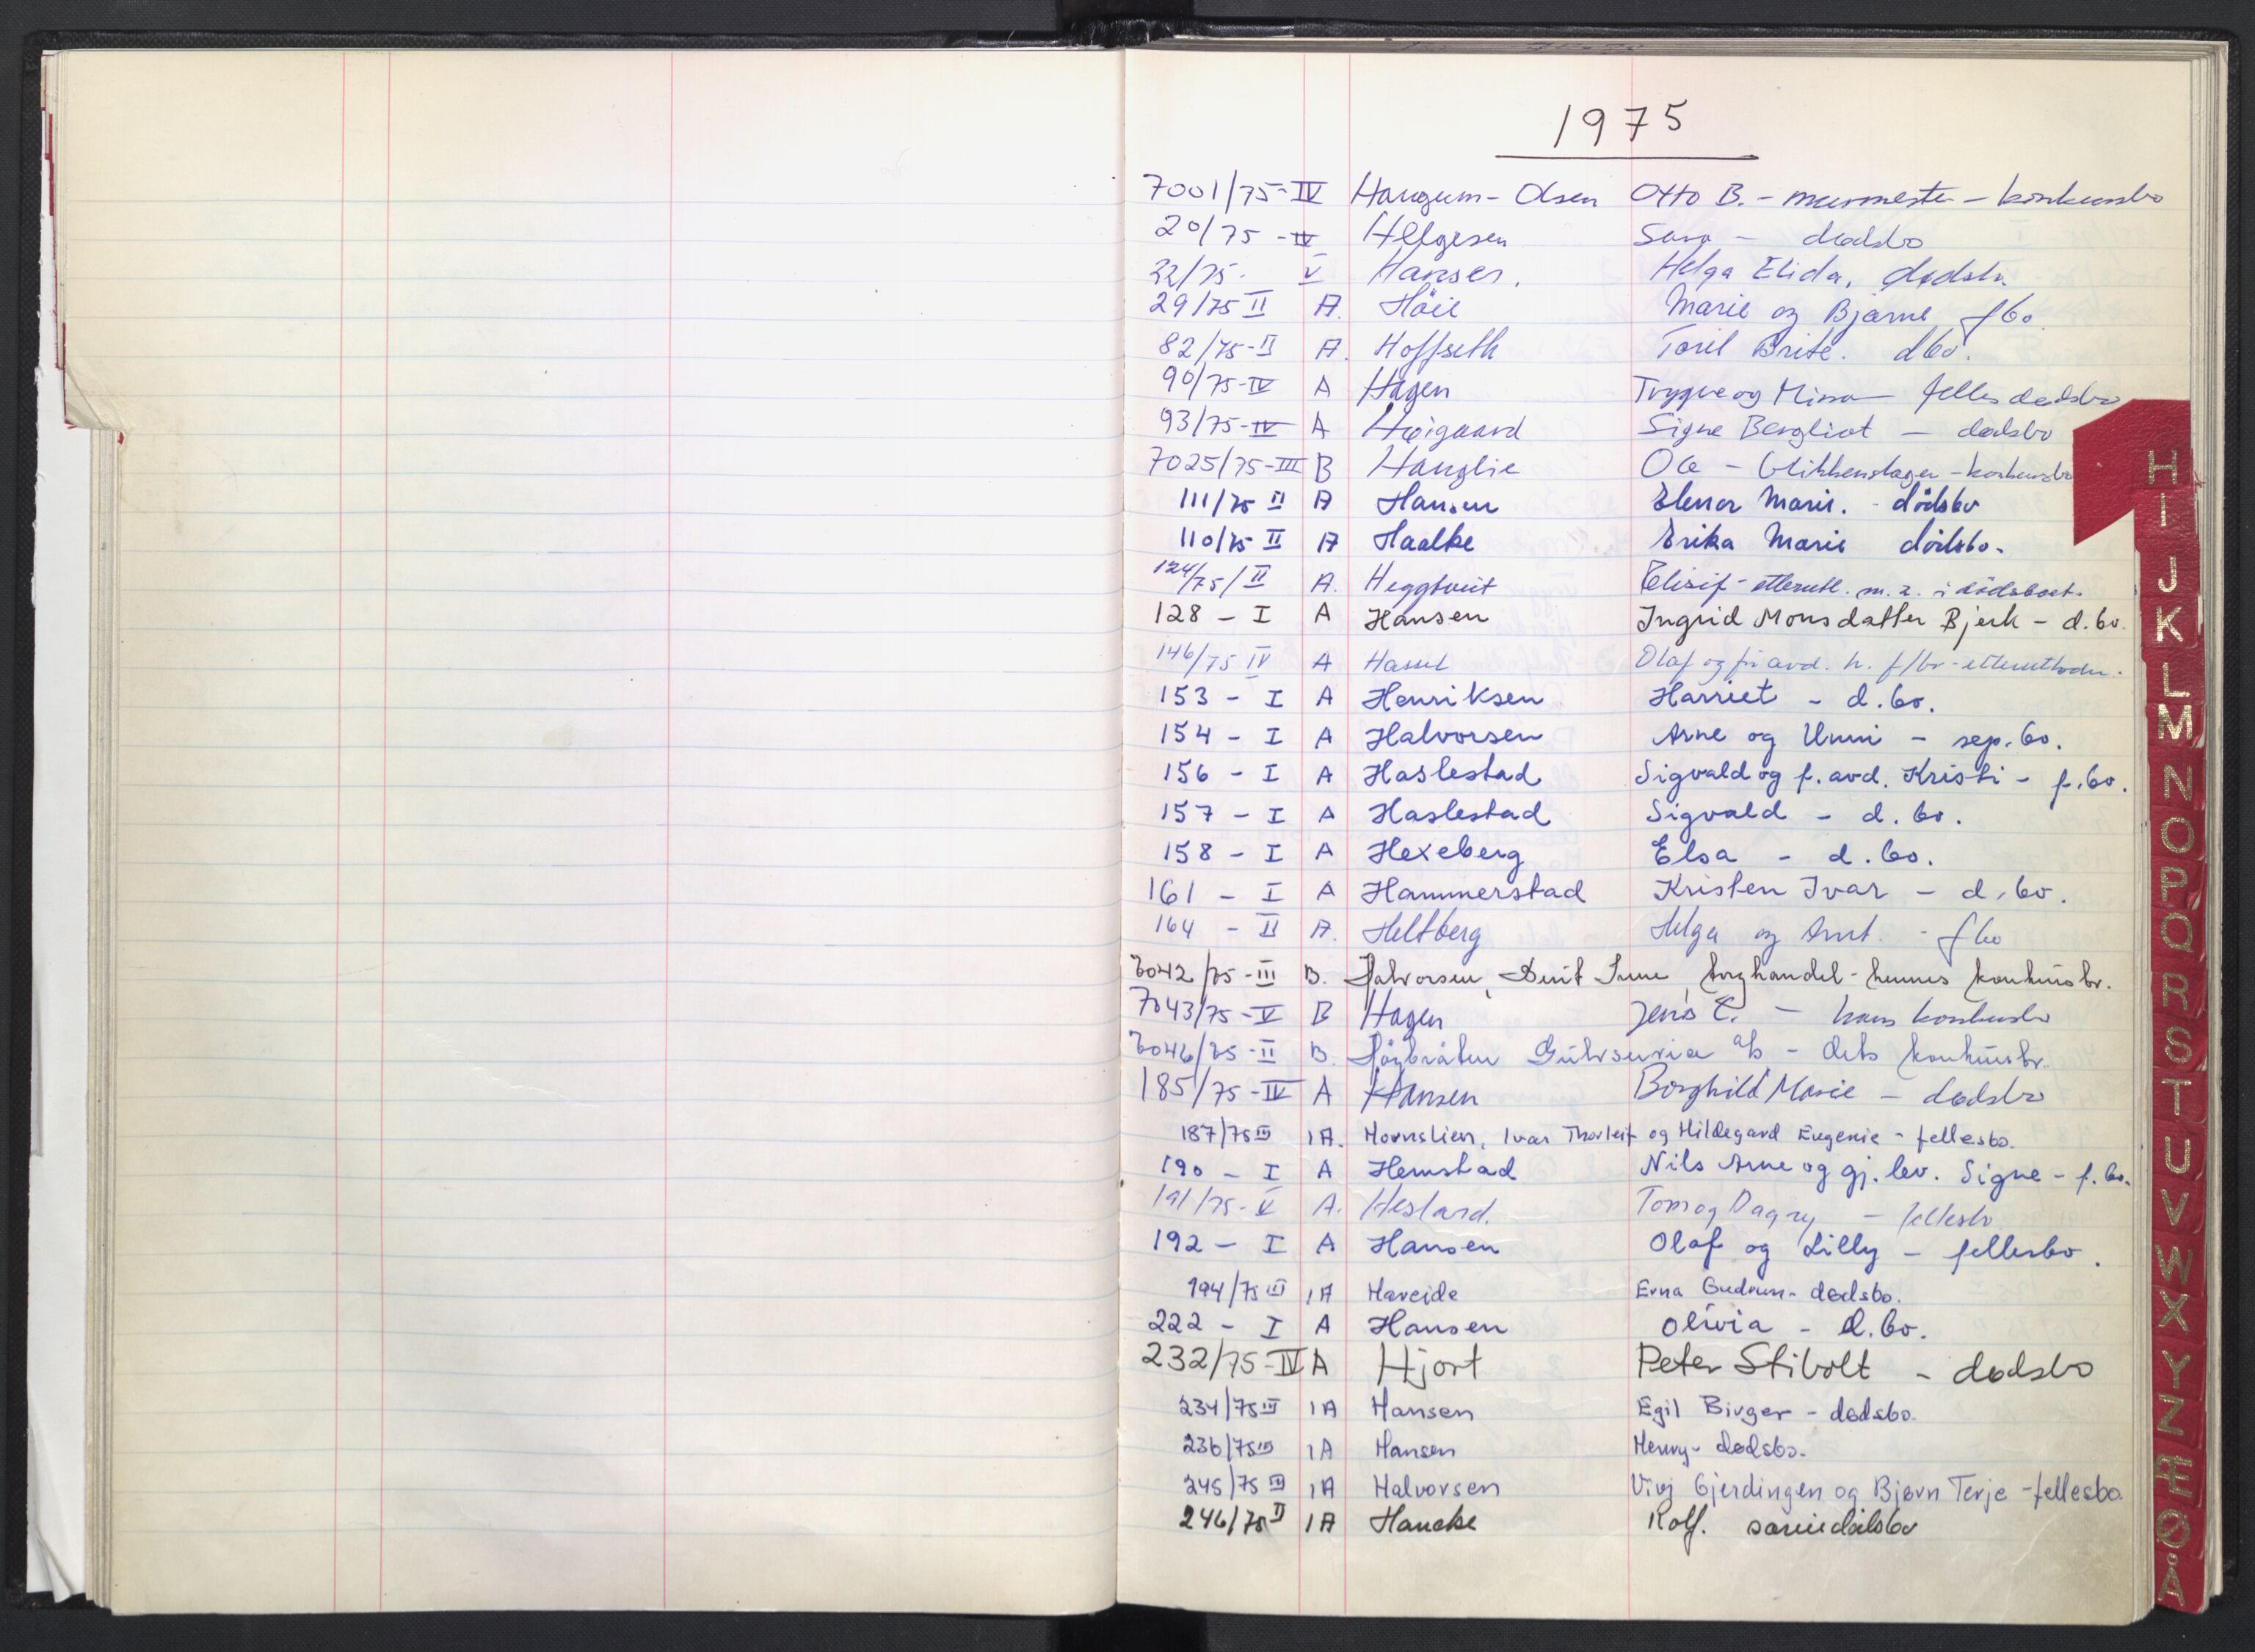 1975
7001/75-IV Haugum-Olsen Otto B. - murmester - konkursbo
20/75-IV Helgesen - dødsbo
22/75. V Hansen. Helga Elida, dødsbo
29/75 II A. Höie Marie og Bjarne fbo.
82/75-II A. Hoffseth Toril Brite. dbo.
90/75-IV A Hagen Trygve og Minna felles dødsbo
93/75-IV A Høigaard Signe Bergliot - dødsbo
7025/75-III B Hanglie Ole - blikkenslager - konkursbo
111/75 II A Hansen Elenor Marie. - dödsbo
110/75 II A Haalke Erika Marie dödsbo.
124/75/II A. Heggtveit Elisif - etterutl. m.z. i dödsboet.
128 - I A Hansen Ingrid Monsdatter Bjerk - d.bo.
146/75 IV A Hassel Olaf og fru avd. h. f/bo
153 - I A Henriksen Harriet - d.bo.
154 - I A Halvorsen Arne og Unni - sep.bo.
156 - I A Haslestad Sigvald og f. avd. Kristi - f.bo.
157 - I A Haslestad Sigvald - d.bo.
158 - I A Hexeberg Elsa - d.bo.
161 - I A Hammerstad Kristen Ivar - d.bo.
164 - II A. Heltberg Helga og Arnt. - fbo
7042/75-III B. Halvorsen, Berit, torghandel - hennes konkursbo.
7043/75-V B Hagen Jens E. - hans konkursbo
7046/75-II B. Högbråten a/s - dets konkursbo.
185/75-IV A Hansen Borghild Marie - dødsbo
187/75 III 1A. Hornslien, Ivar Thorleif og Hildegard Eugenie - fellesbo.
190 - I A Hemstad Nils Arne og gj.lev. Signe - f.bo.
191/75-V A. Hestand. Tom og Dagny - fellesbo
192 - I A Hansen Olaf og Lilly - fellesbo.
194/75 III 1A Hareide Erna Gudrun - dødsbo.
222 - I A Hansen Olivia - d.bo.
232/75-IV A Hjort Peter Stibolt - dødsbo
234/75 III 1A Hansen Egil Birger - dødsbo.
236/75 III 1A Hansen Henry - dødsbo.
245/75 III 1A Halvorsen Vivi Gjerdingen og Bjørn Terje - fellesbo
246/75 II 1A Hancke Rolf. særiedödsbo
H
I
J
K
L
M
N
O
P
Q
R
S
T
U
V
W
X
Y
Z
Æ
Ø
Å